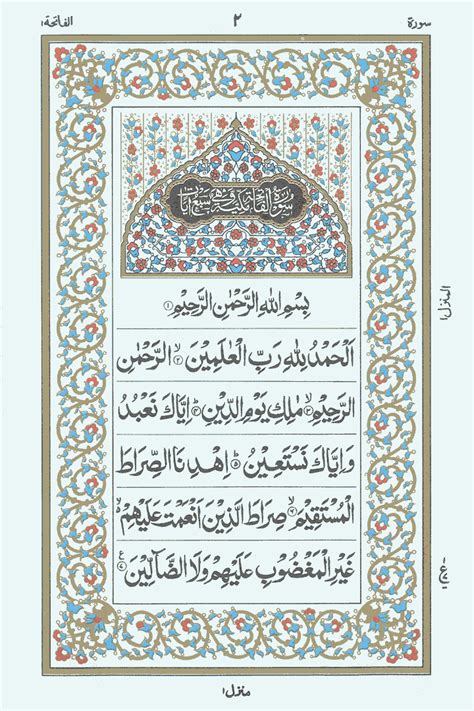 سورة ٢ الفاتحة ١
سورة الفاتحة مكية وهي سبع آيات
بِسْمِ اللهِ الرَّحْمٰنِ الرَّحِيْمِ ۝١
اَلْحَمْدُ لِلّٰهِ رَبِّ الْعٰلَمِيْنَ ۙ۝٢ الرَّحْمٰنِ
الرَّحِيْمِ ۙ۝٣ مٰلِكِ يَوْمِ الدِّيْنِ ؕ۝٤ اِيَّاكَ نَعْبُدُ
وَاِيَّاكَ نَسْتَعِيْنُ ؕ۝٥ اِهْدِنَا الصِّرَاطَ
الْمُسْتَقِيْمَ ۙ۝٦ صِرَاطَ الَّذِيْنَ اَنْعَمْتَ عَلَيْهِمْ ۙ
غَيْرِ الْمَغْضُوْبِ عَلَيْهِمْ وَلَا الضَّآلِّيْنَ ۝٧ ع
المنزل ١
منزل ١